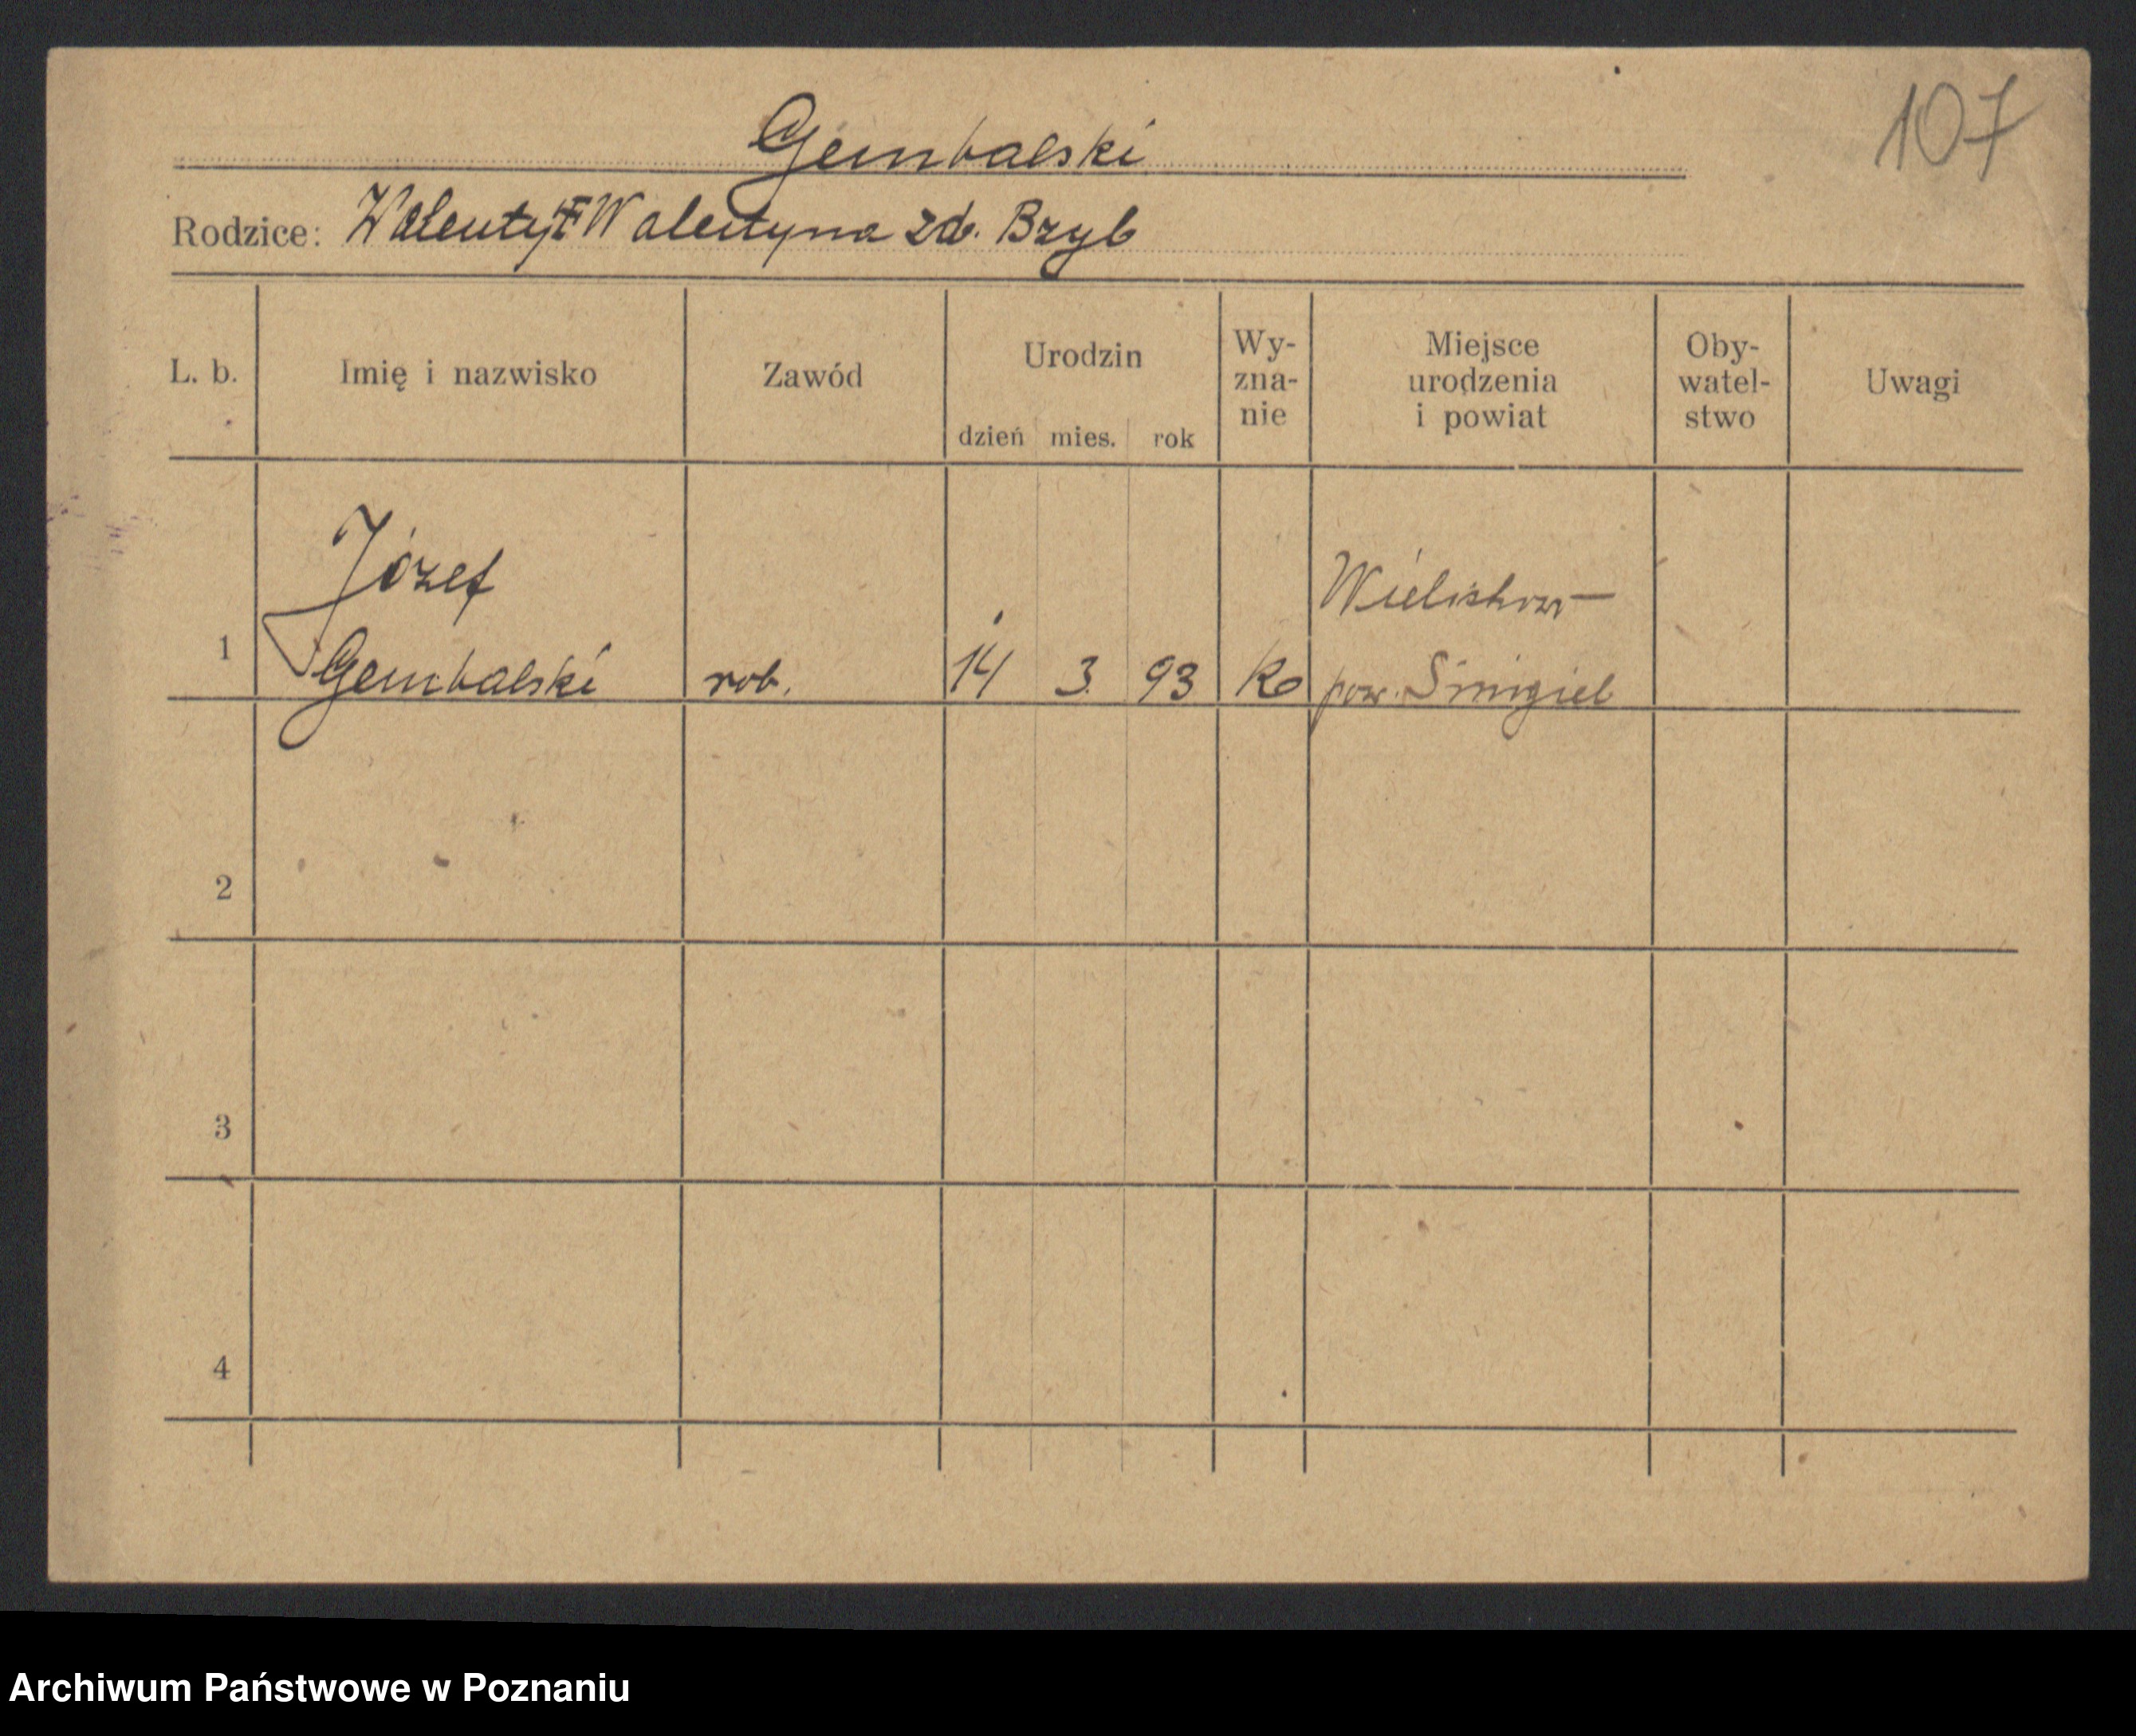 107
Gembalski
Rodzice: Walenty i Walentyna zd. Bzyl
L. b.
Imię i nazwisko
Zawód
Urodzin
dzień mies. rok
Wy-
zna-
nie
Miejsce
urodzenia
i powiat
Oby-
watel-
stwo
Uwagi
Józef
1 Gembalski rob. 14 3. 93 pow. Śmigiel
2
3
4
Archiwum Państwowe w Poznaniu